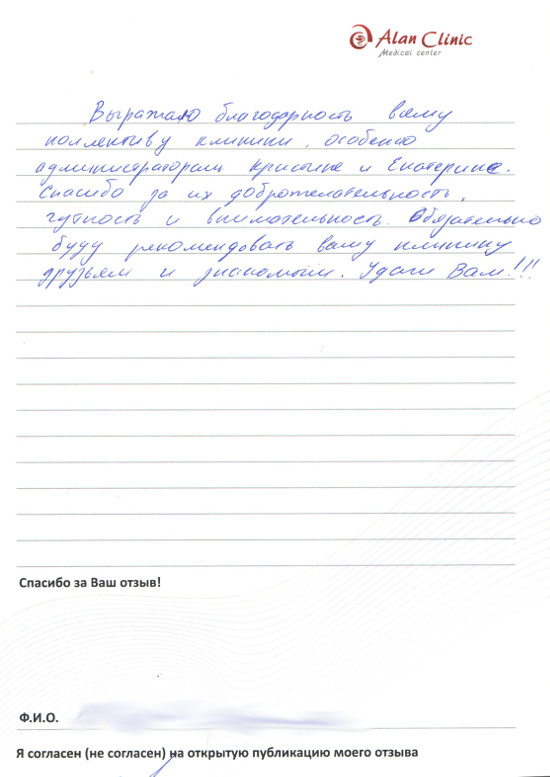 Alan Clinic
Medical center
Выражаю благодарность всему
коллективу клиники, особенно
администраторам Кристине и Екатерине.
Спасибо за их доброжелательность,
чуткость и внимательность. Обязательно
буду рекомендовать вашу клинику
друзьям и знакомым. Удачи Вам!!!
Спасибо за Ваш отзыв!
Ф.И.О.
Я согласен (не согласен) на открытую публикацию моего отзыва